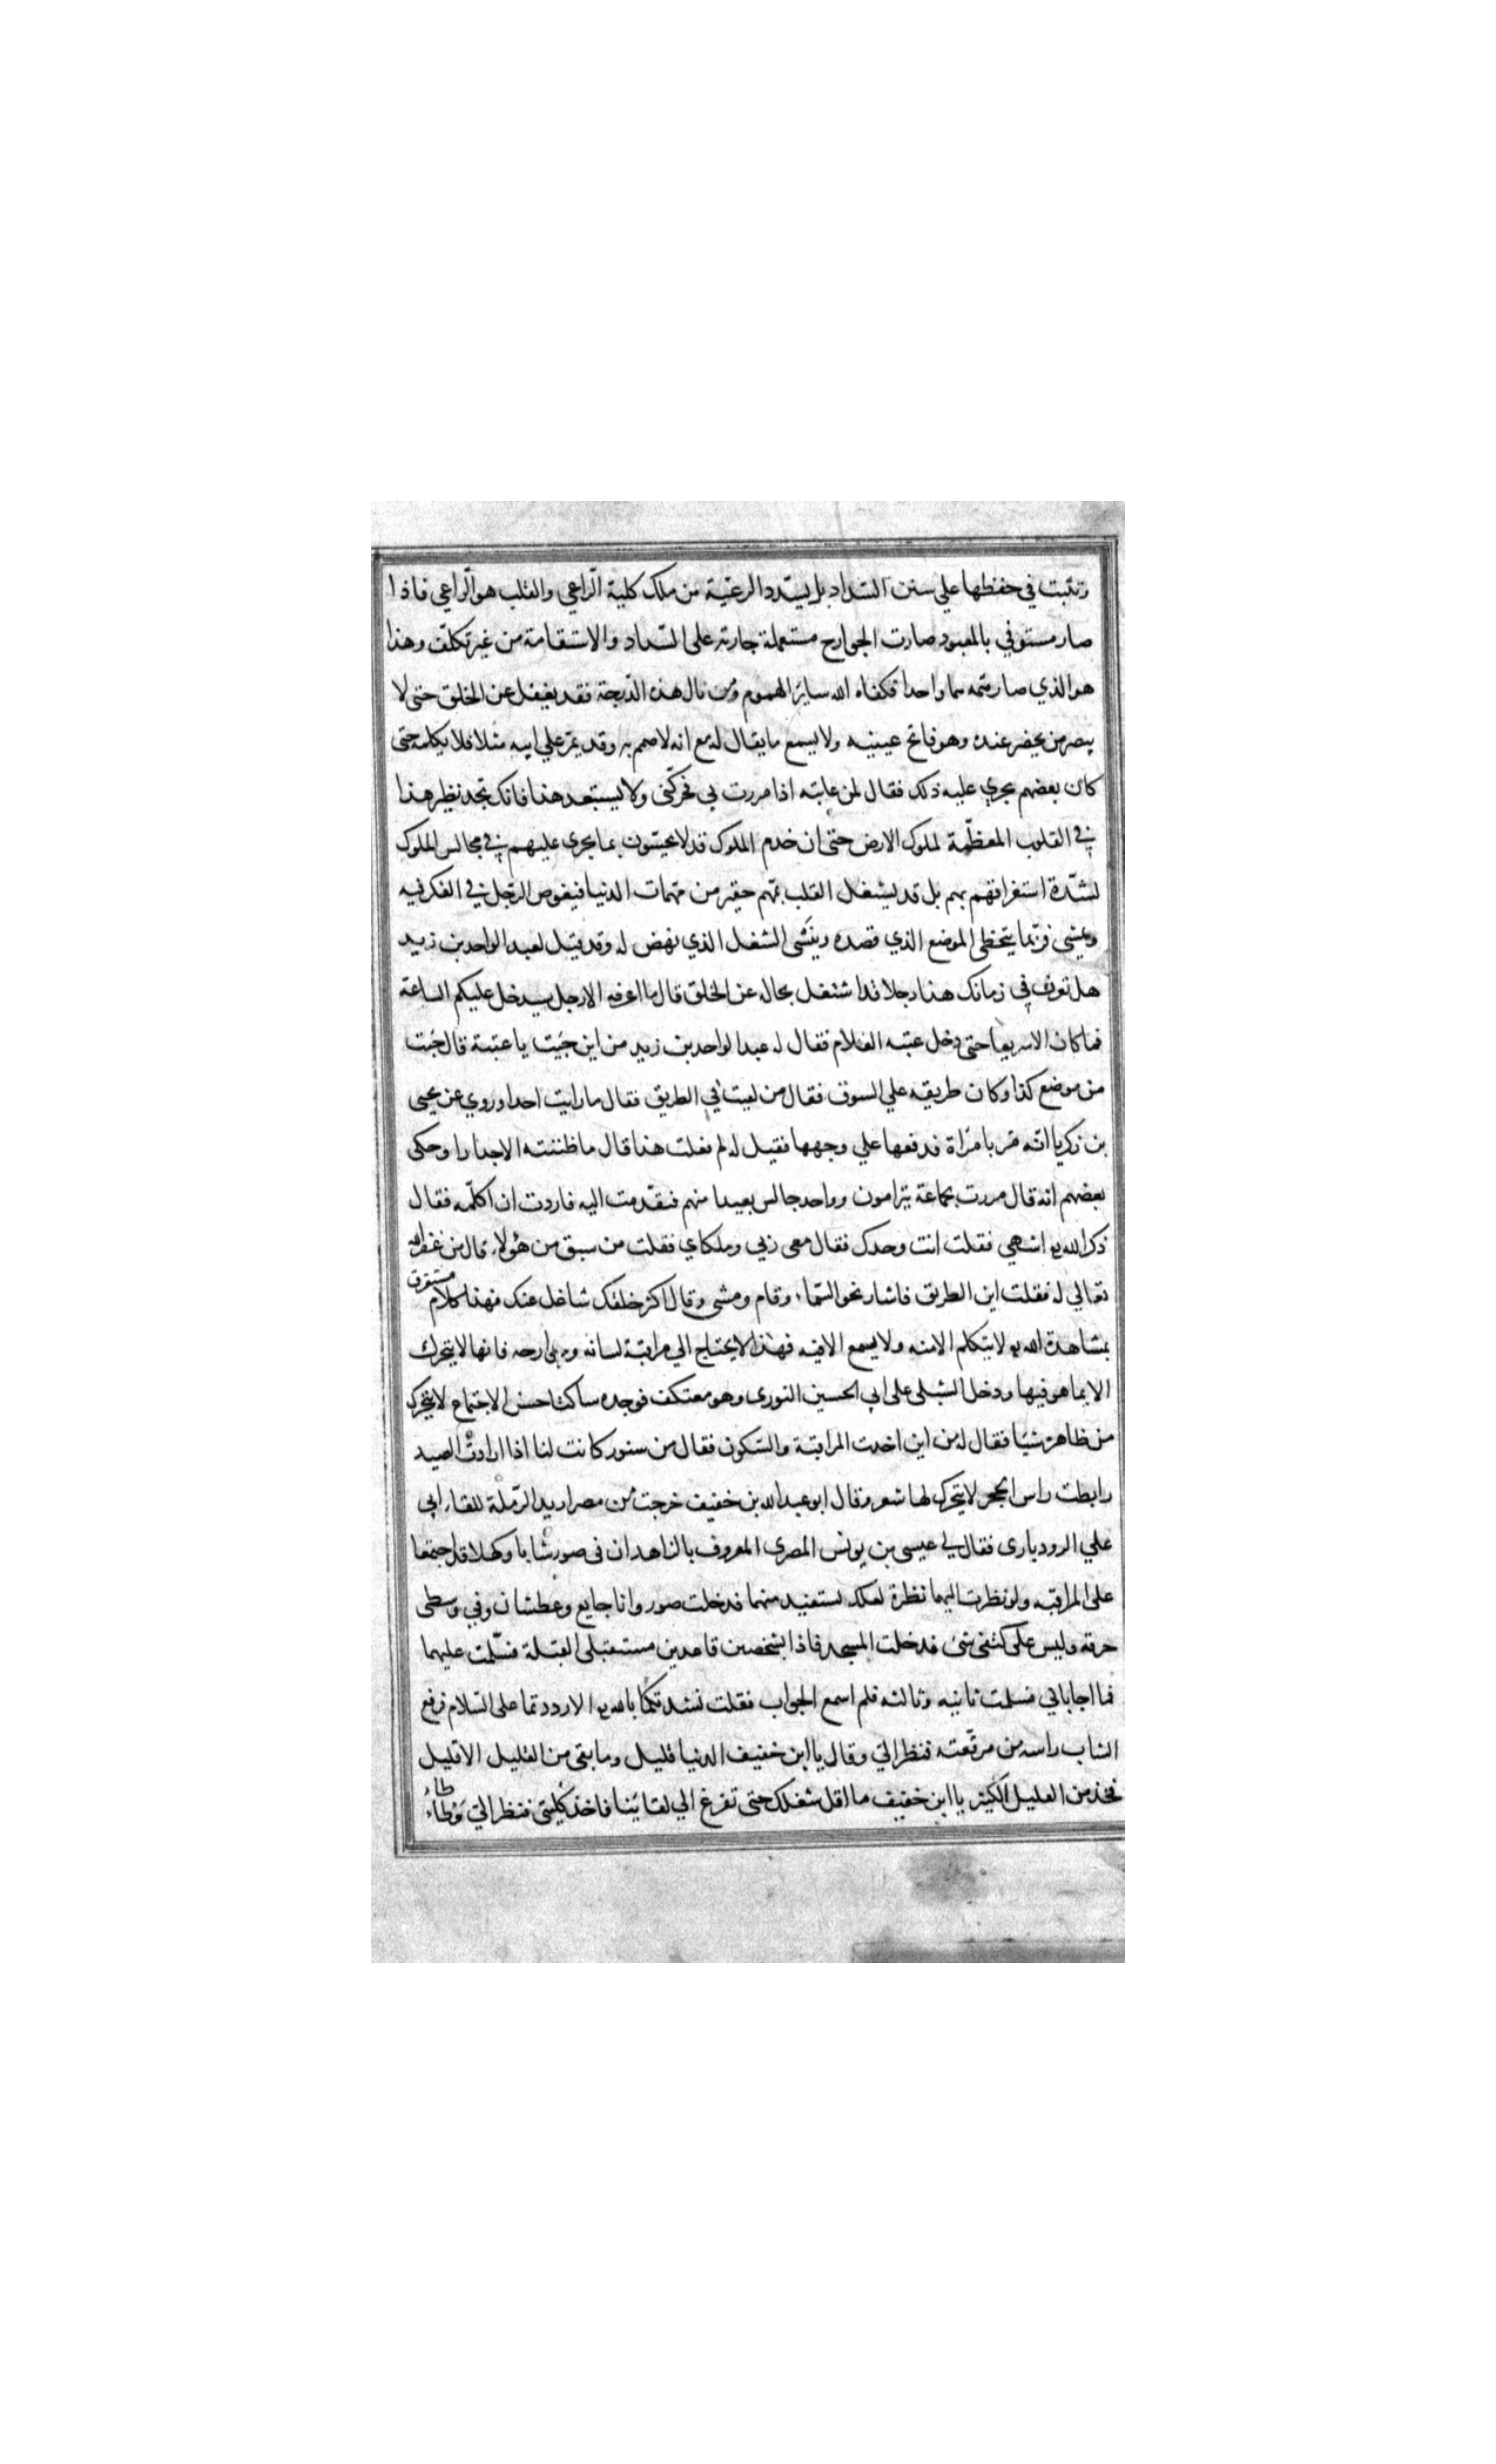 وتثبت في حفظها علي سنن السداد بل يسدد الرعية من ملك كلية الراعي والقلب هو الراعي فاذا
صار مستوفي بالمعبود صارت الجوارح مستعملة جارية على السداد والاستقامة من غير تكلف وهذا
هو الذي صار همه هما واحدا فكفاه الله سائر الهموم ومن نال هذه الدرجة فقد يغفل عن الخلق حتى لا
يبصر من يحضر عنده وهو فاتح عينيه ولا يسمع ما يقال له مع انه لا صمم به وقد يمر علي ابيه مثلا فلا يكلمه حتى
كان بعضهم يجري عليه ذلك فقال لمن عاتبه اذا مررت بي فحركني ولا يستبعد هذا فانك تجد نظير هذا
في القلوب المعظمة لملوك الارض حتى ان خدم الملوك قد لا يحسون بما يجرى عليهم في مجالس الملوك
لشدة استغراقهم بهم بل قد يشغل القلب بمهم حقير من مهمات الدنيا فيغوص الرجل في الفكر فيه
ويمشى فربما يتخطى الموضع الذي قصده وينسى الشغل الذي نهض له وقد قيل لعبد الواحد بن زيد
هل تعرف في زمانك هذا رجلا قد اشتغل بحاله عن الخلق قال ما اعرفه الا رجل سيدخل عليكم الساعة
فما كان الا سريعا حتى دخل عتبه الغلام فقال له عبد الواحد بن زيد من اين جيت يا عتبة قال جيت
من موضع كذا وكان طريقه علي السوق فقال من لقيت في الطريق فقال ما رايت احدا وروي عن يحيى
بن زكريا انه مر بامراة فدفعها علي وجهها فقيل له لم فعلت هذا قال ما ظننته الا جدارا وحكى
بعضهم انه قال مررت بجماعة يترامون وواحد جالس بعيدا منهم فتقدمت اليه فاردت ان اكلمه فقال
ذكر الله اشهي فقلت انت وحدك فقال معى ربي وملكاي فقلت من سبق من هؤلاء قال من غفر الله
تعالي له فقلت اين الطريق فاشار نحو السماء وقام ومشى وقال اكثر خلقك شاغل عنك فهذا كلام مستغرق
بمشاهدة الله لا يتكلم الا منه ولا يسمع الا فيه فهذا لا يحتاج الي مراقبة لسانه وجوارحه فانها لا يتحرك
الا بما هو فيها ودخل الشبلى على ابي الحسين النورى وهو معتكف فوجده ساكتا حسن الاجتماع لا يتحرك
من ظاهره شيا فقال له من اين اخذت المراقبة والسكون فقال من سنور كانت لنا اذا ارادت الصيد
رابطت راس الجحر لا يتحرك لها شعر وقال ابو عبد الله بن خفيف خرجت من مصر اريد الرملة للقاء ابي
علي الرودبارى فقال لي عيسى بن يونس المصرى المعروف بالزاهد ان فى صور شابا وكهلا قد اجتمعا
على المراقبه ولو نظرت اليهما نظرة لعلك تستفيد منهما فدخلت صور وانا جايع وعطشان وفي وسطى
خرقة وليس على كتفى شئ فدخلت المسجد فاذا بشخصين قاعدين مستقبلى القبلة فسلمت عليهما
فما اجاباني فسلمت ثانيه وثالثه فلم اسمع الجواب فقلت نشدتكما بالله الا رددتما على السلام فرفع
الشاب راسه من مرقعته فنظر الي وقال يا ابن خفيف الدنيا قليل وما بقى من القليل الا قليل
فخذ من القليل الكثير يا ابن خفيف ما اقل شغلك حتى تفرغ الي لقائنا فاخذ كليتى فنظر الي